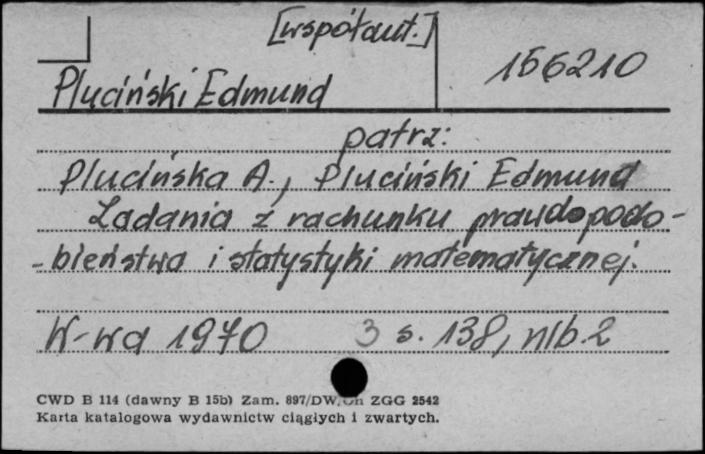 [współaut.]
Pluciński Edmund
156210
patrz:
Plucińska A., Pluciński Edmund
Zadania z rachunku prawdopodo-
-bieństwa i statystyki matematycznej.
W-wa 1970 3 s. 138, nlb. 2
CWD B 114 (dawny B 15b) Zam. 897/DW. ZGG 2542
Karta katalogowa wydawnictw ciągłych i zwartych.